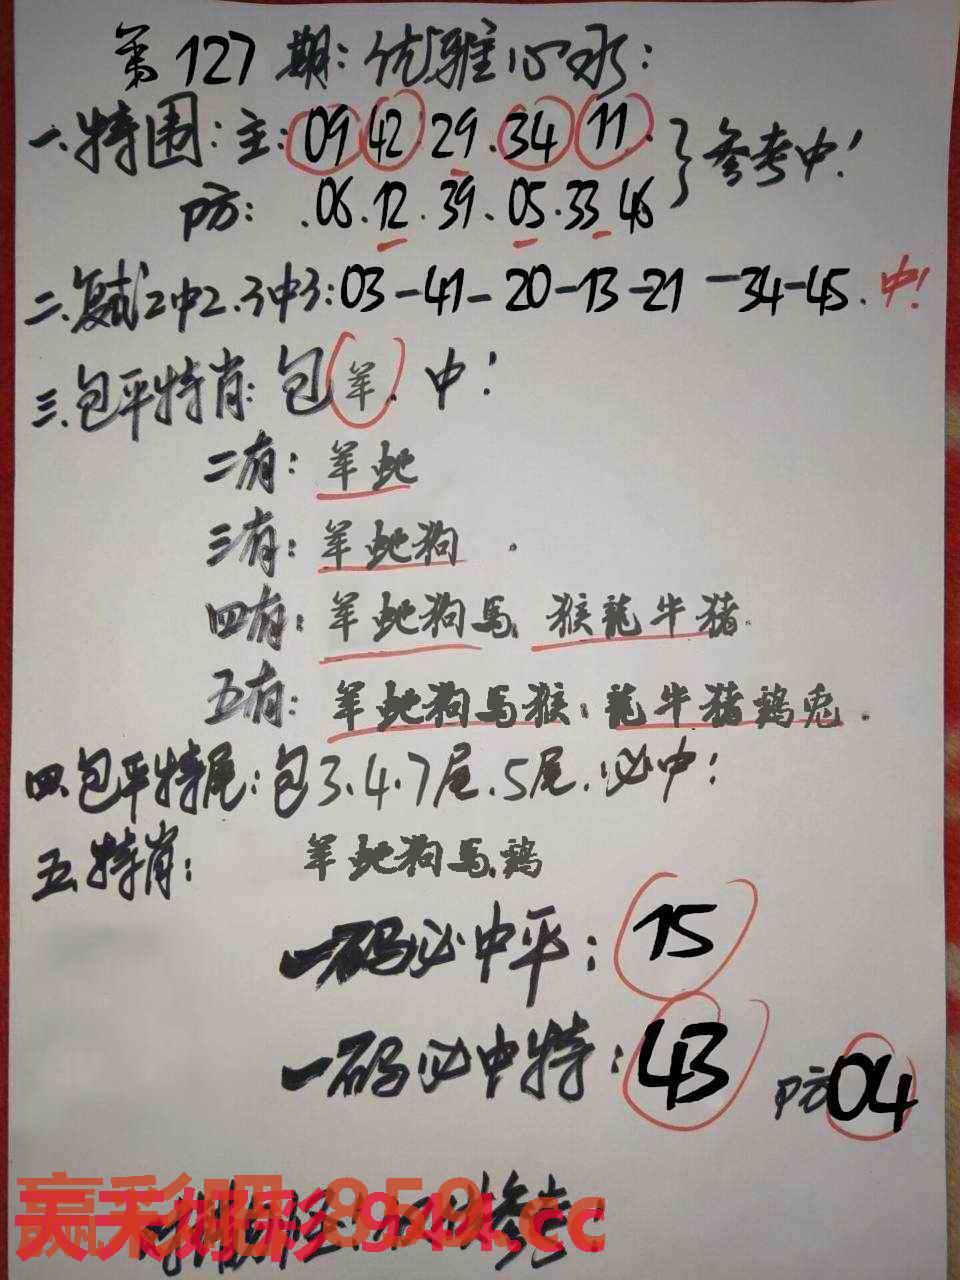 第127期:优雅心水:
一.特围:主:09 42 29.34 11.}参考中!
防:.06.12.39.05.33 46
二.复试2中2.3中3:03-41-20-13-21-34-45.中!
三.包平特肖:包羊.中!
二有:羊蛇
三有:羊蛇狗.
四有:羊蛇狗马 猴龍牛猪.
五有:羊蛇狗马猴:龍牛猪鷄兎.
四.包平特尾:包3.4.7尾.5尾.必中!
五.特肖: 羊蛇狗马鷄
一码必中平:15
一码必中特:43 防04
参考